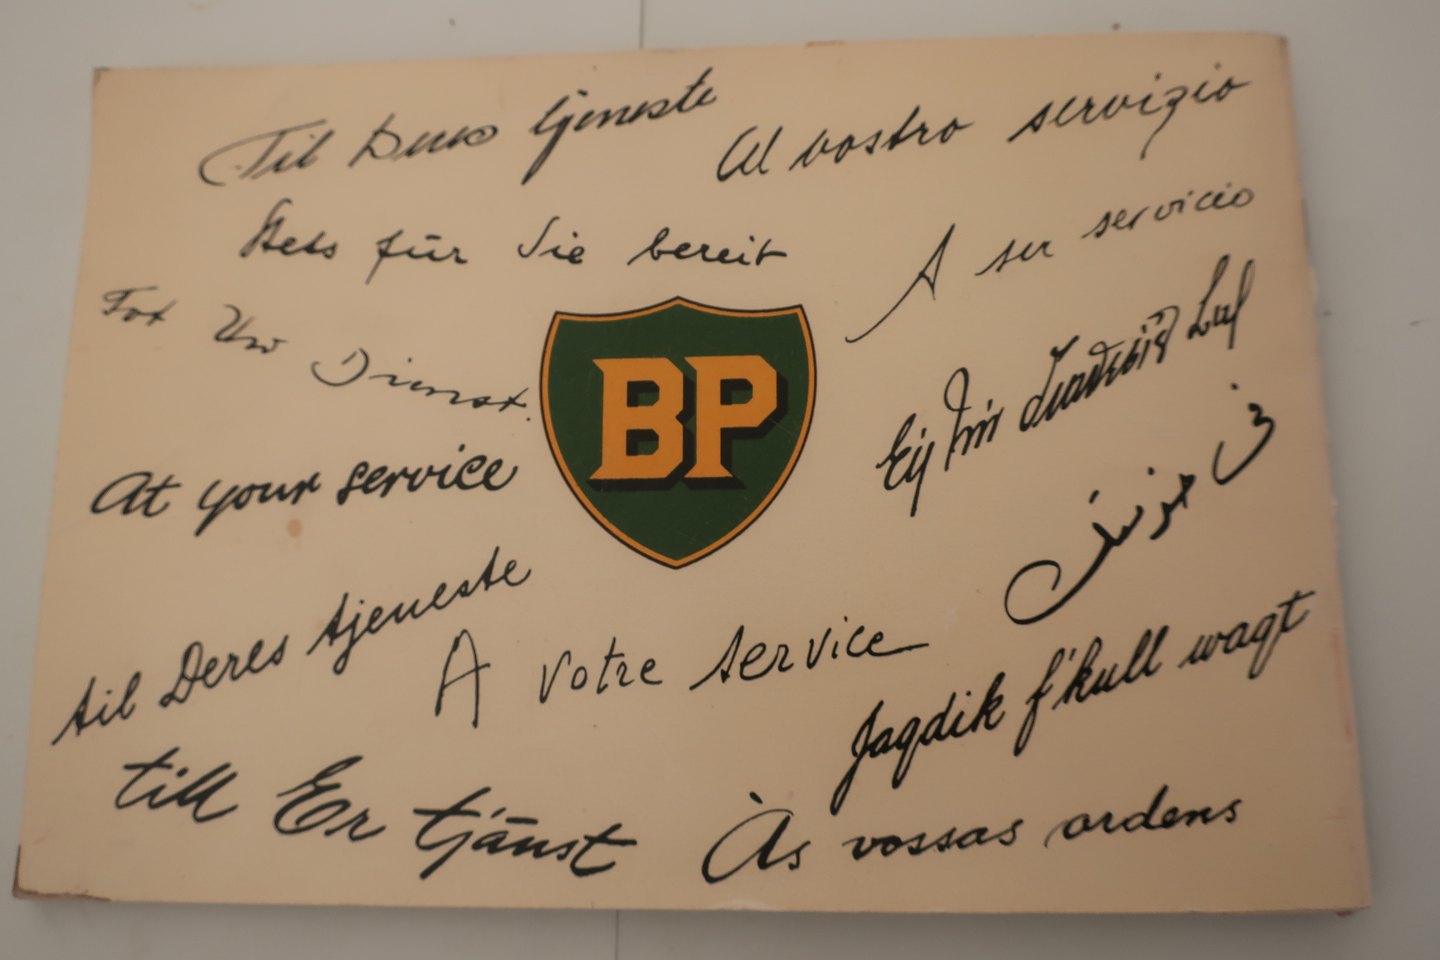 Til Deres tjeneste
Al vostro servizio
Stets für Sie bereit
A ser servicio
Tot Uw Dienst.
BP
At your service
til Deres tjeneste
A votre service
Jagdik f'kull waqt
till Er tjänst
Às vossas ordens